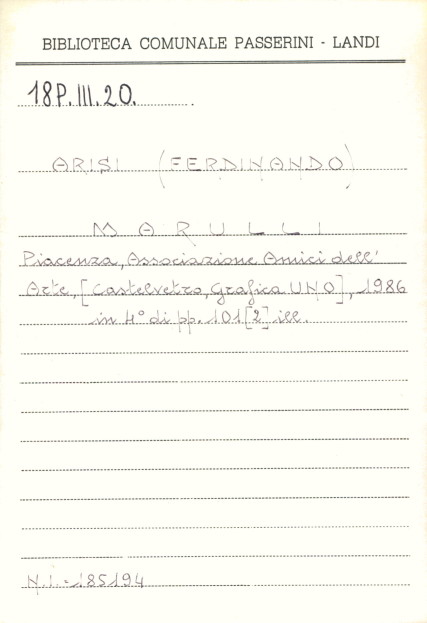 BIBLIOTECA COMUNALE PASSERINI - LANDI
18P.III.20.
ARISI (FERDINANDO)
MARULLI
Piacenza, Associazione Amici dell'
Arte, [Castelvetro, Grafica UNO], 1986
in 4° di pp. 101 [2] ill.
N.I. = 185194